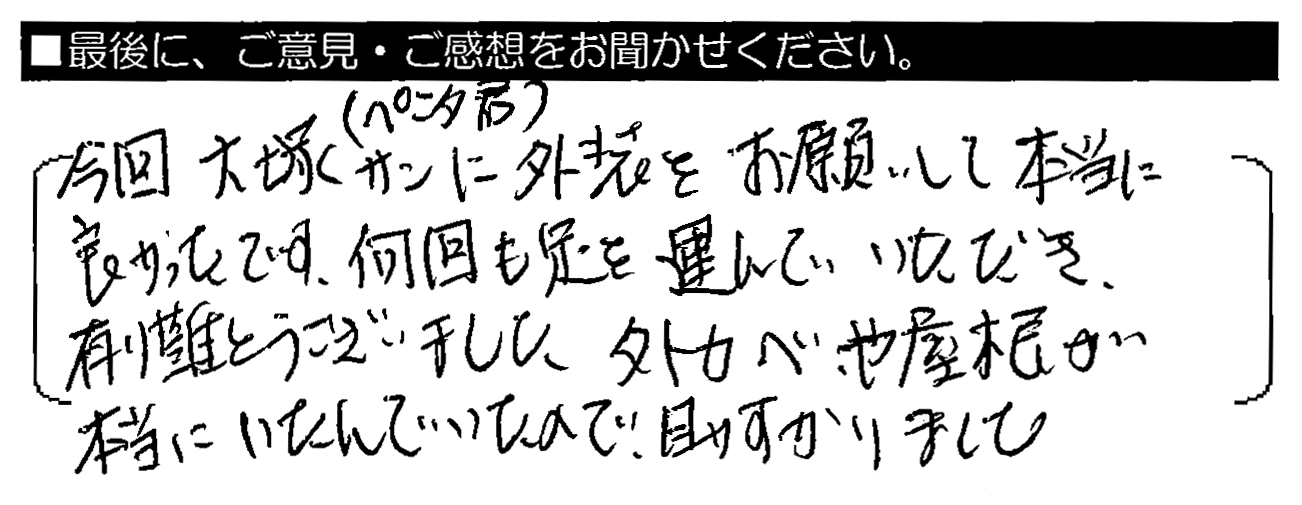 ■最後に、ご意見・ご感想をお聞かせください。
(ペンタ君)
今回 大塚サンに外装をお願いして本当に
良かったです。何回も足を運んでいただき、
有り難とうございました。外カベや屋根が
本当にいたんでいたので、助かりました